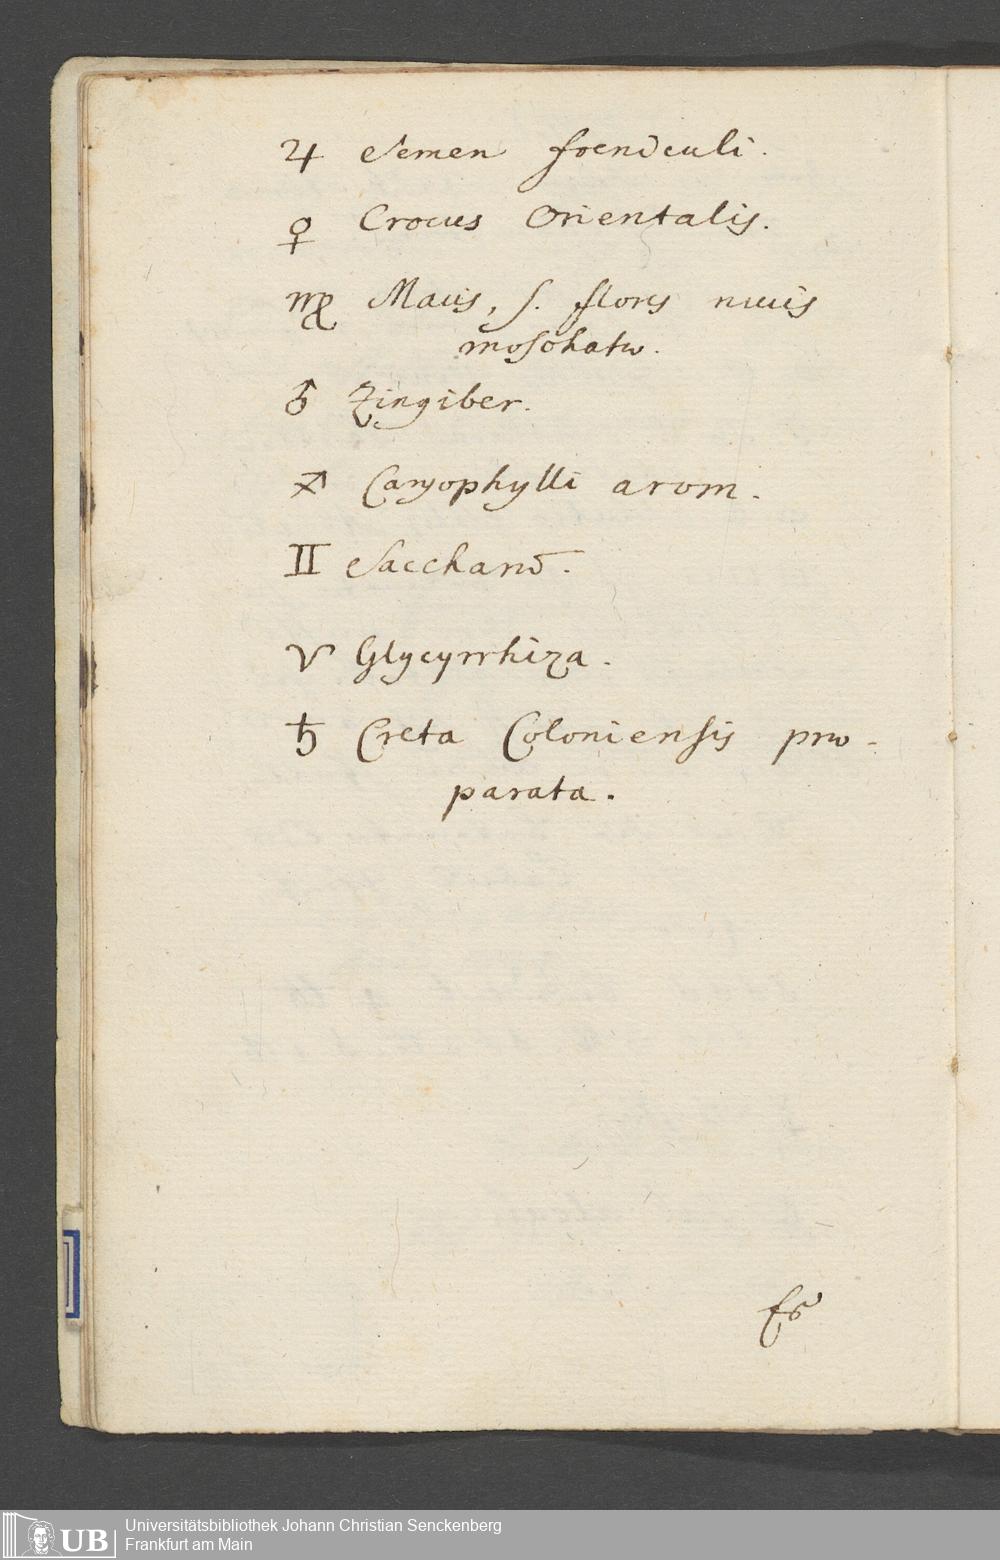 ♃ Semen foeniculi.
♀ Crocus Orientalis.
♍ Macis, s. floris nucis
moschatæ.
♂ Zingiber.
♐ Caryophylli arom.
♊ Saccharū.
♈ Glycyrrhiza.
♄ Creta Coloniensis præ-
parata.
UB
Universitätsbibliothek Johann Christian Senckenberg
Frankfurt am Main